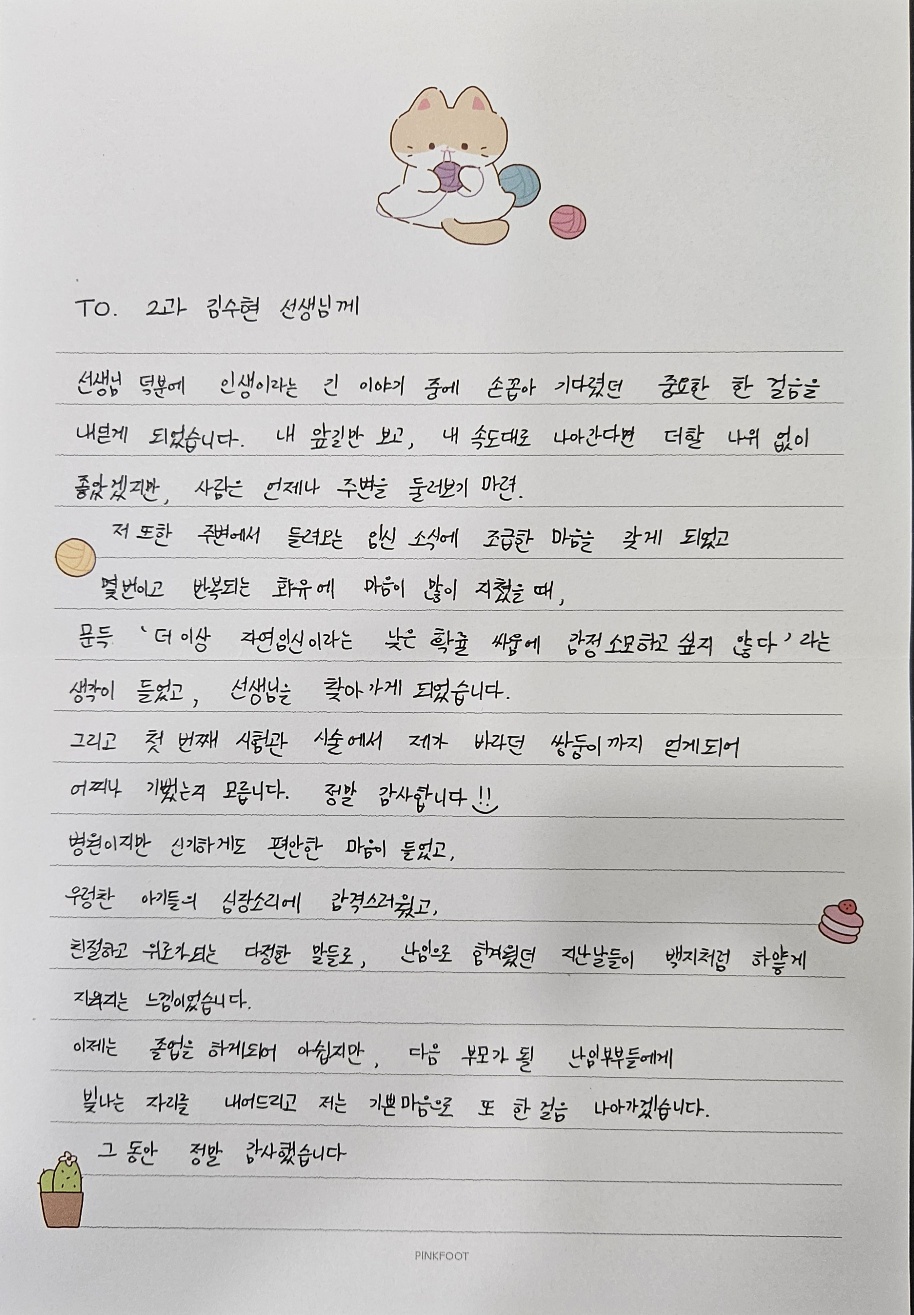 TO. 2과 김수현 선생님께
선생님 덕분에 인생이라는 긴 이야기 중에 손꼽아 기다렸던 중요한 한 걸음을
내딛게 되었습니다. 내 앞길만 보고, 내 속도대로 나아간다면 더할 나위 없이
좋았겠지만, 사람은 언제나 주변을 둘러보기 마련.
저 또한 주변에서 들려오는 임신 소식에 조급한 마음을 갖게 되었고
몇번이고 반복되는 화유에 마음이 많이 지쳤을 때,
문득 '더 이상 자연임신이라는 낮은 확률 싸움에 감정 소모하고 싶지 않다' 라는
생각이 들었고, 선생님을 찾아가게 되었습니다.
그리고 첫 번째 시험관 시술에서 제가 바라던 쌍둥이까지 얻게되어
어찌나 기뻤는지 모릅니다. 정말 감사합니다!!
병원이지만 신기하게도 편안한 마음이 들었고,
우렁찬 아기들의 심장소리에 감격스러웠고,
친절하고 위로가되는 다정한 말들로, 난임으로 힘겨웠던 지난날들이 백지처럼 하얗게
지워지는 느낌이었습니다.
이제는 졸업을 하게되어 아쉽지만, 다음 부모가 될 난임부부들에게
빛나는 자리를 내어드리고 저는 기쁜마음으로 또 한 걸음 나아가겠습니다.
그 동안 정말 감사했습니다
PINKFOOT